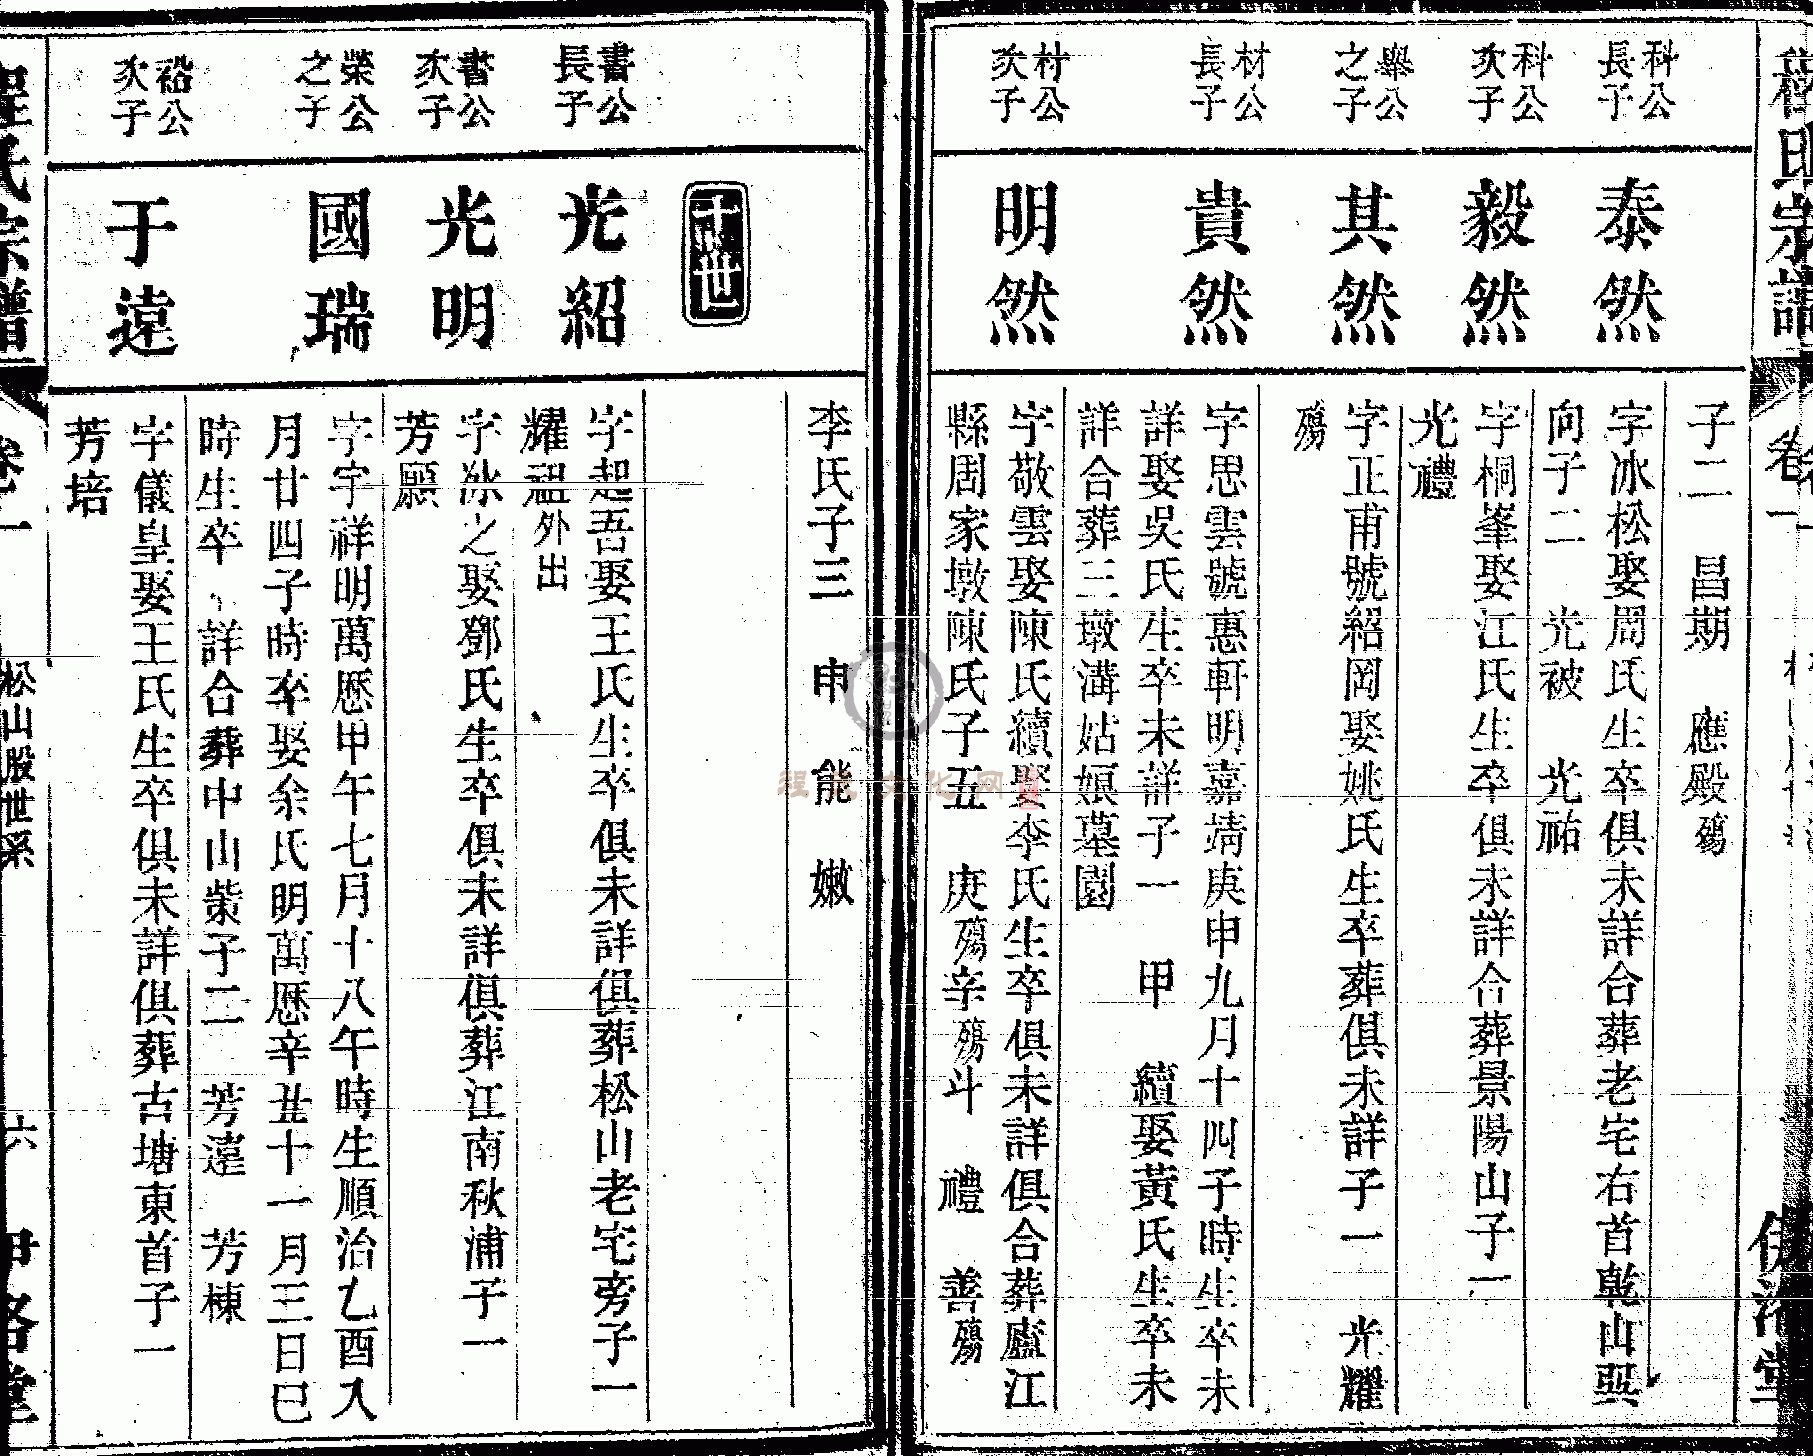 程氏宗譜
卷一
伊洛堂
子二 昌期 應殿殤
科公長子
泰然
字冰松娶周氏生卒俱未詳合葬老宅右首乾山巽
向子二 光被 光祐
科公次子
毅然
字桐峯娶江氏生卒俱未詳合葬景陽山子一
光禮
舉公之子
其然
字正甫號紹岡娶姚氏生卒葬俱未詳子一 光耀
殤
材公長子
貴然
字思雲號惠軒明嘉靖庚申九月十四子時生卒未
詳娶吳氏生卒未詳子一 甲 續娶黃氏生卒未
詳合葬三墩溝姑娘墓園
材公次子
明然
字敬雲娶陳氏續娶李氏生卒俱未詳俱合葬廬江
縣周家墩陳氏子五 庚殤辛殤斗 禮 善殤
李氏子三 申 能 嫩
十世
書公長子
光紹
字起吾娶王氏生卒俱未詳俱葬松山老宅旁子一
耀祖外出
書公次子
光明
字冰之娶鄧氏生卒俱未詳俱葬江南秋浦子一
芳願
榮公之子
國瑞
字宇祥明萬厯甲午七月十八午時生順治乙酉入
月廿四子時卒娶余氏明萬厯辛丑十一月三日巳
時生卒 詳合葬中山柴子二 芳遠 芳棟
裕公次子
于遠
字儀皇娶王氏生卒俱未詳俱葬古塘東首子一
芳培
程氏宗譜
卷一
松山股世系
六
伊洛堂